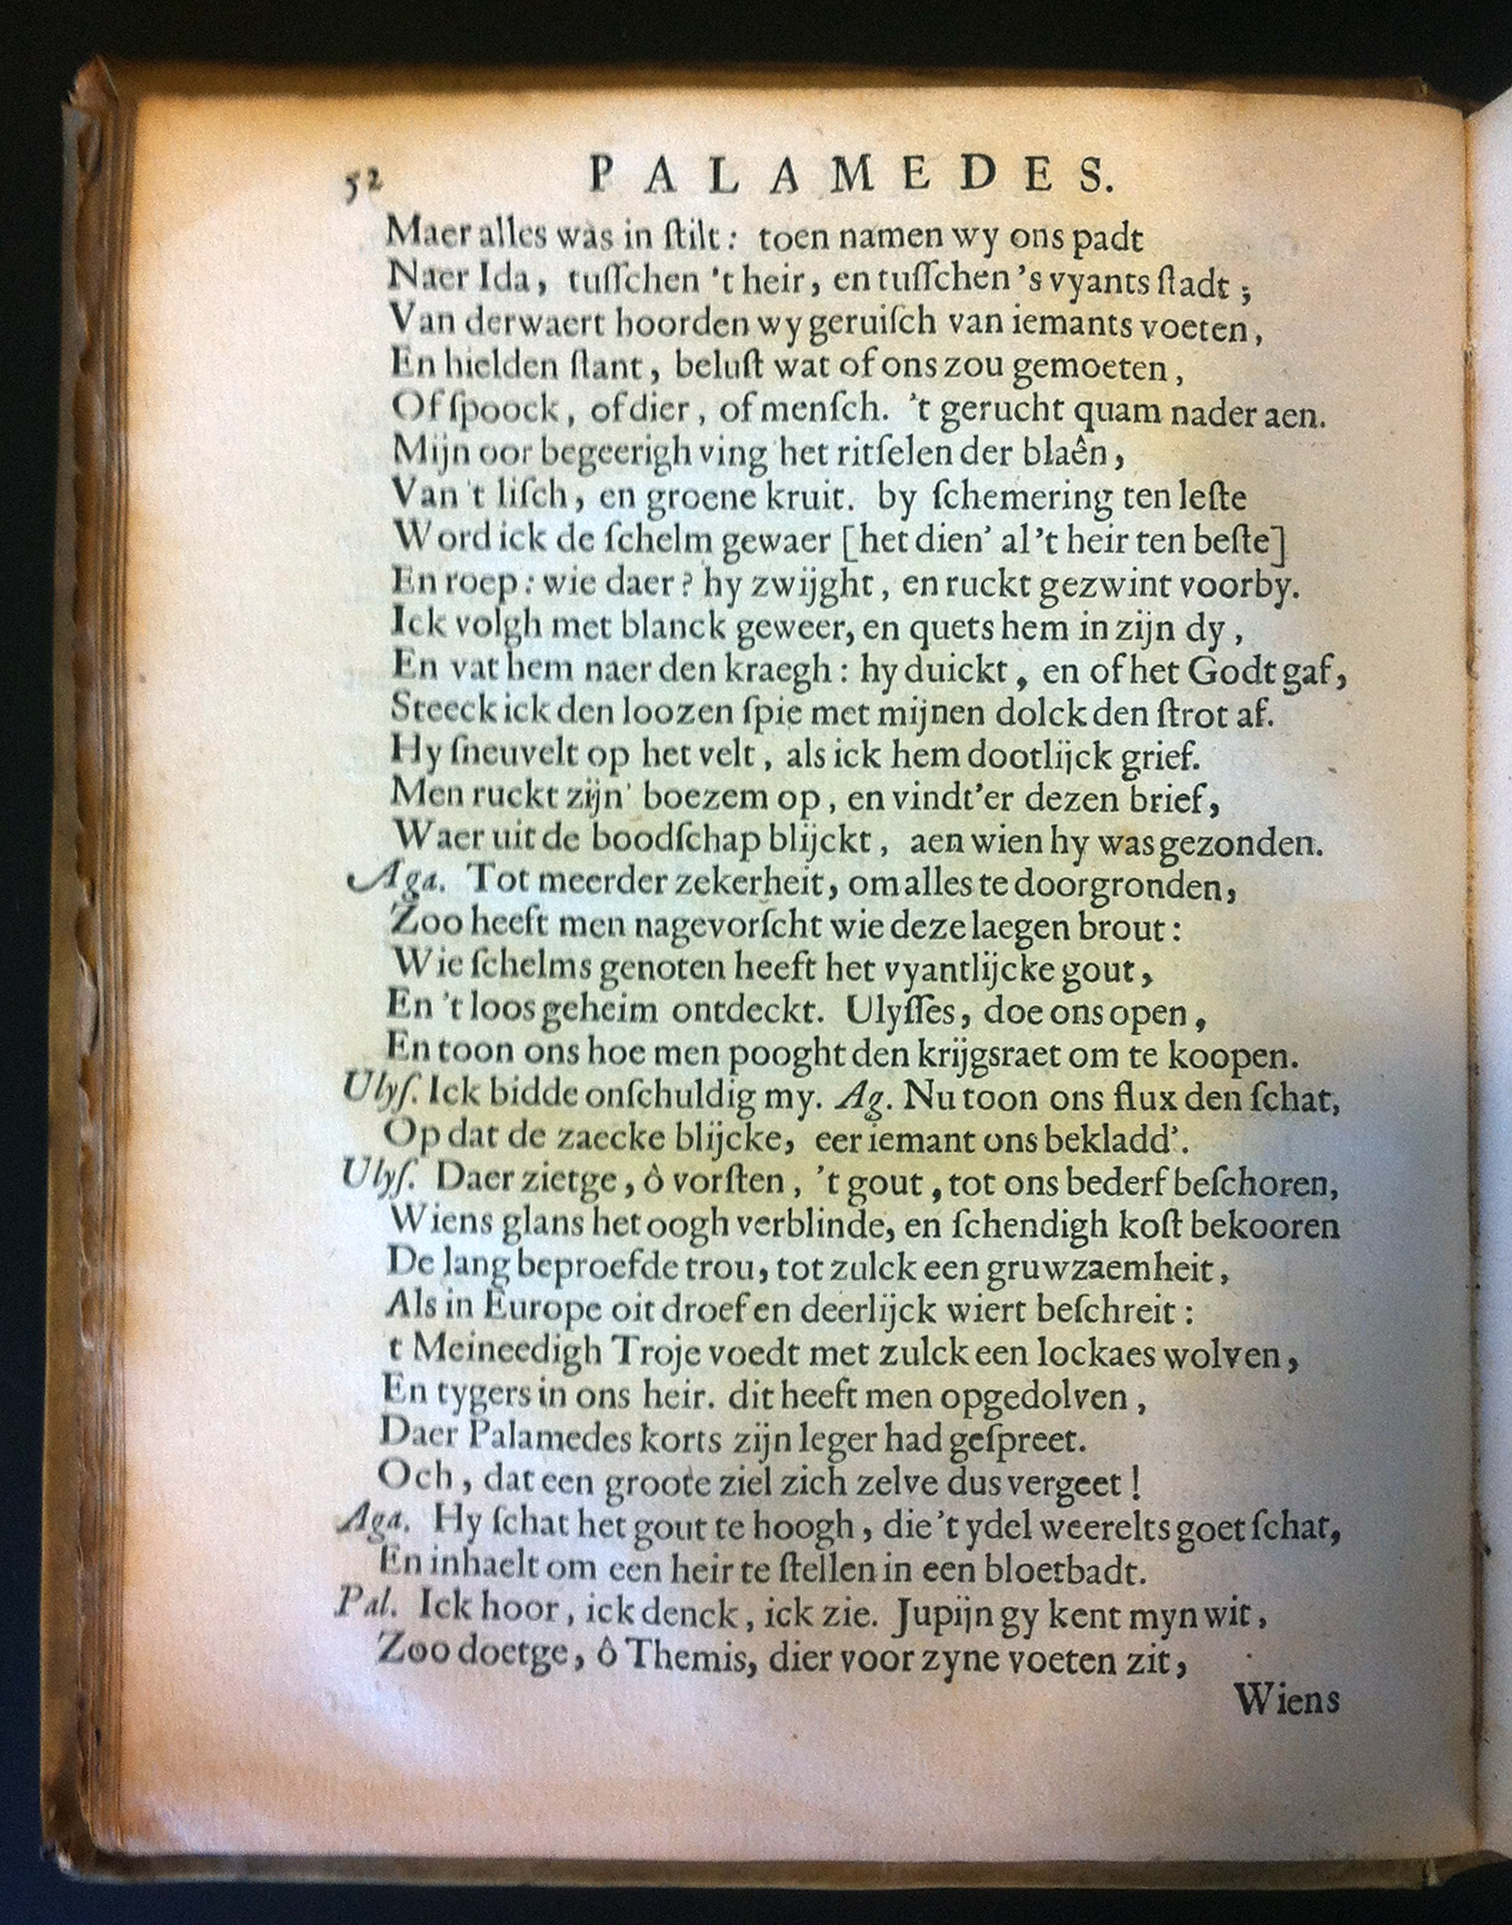 52 PALAMEDES.
Maer alles was in ſtilt: toen namen wy ons padt
Naer Ida, tuſſchen 't heir, en tuſſchen 's vyants ſtadt;
Van derwaert hoorden wy geruiſch van iemants voeten,
En hielden ſtant, beluſt wat of ons zou gemoeten,
Of ſpoock, of dier, of menſch. 't gerucht quam nader aen.
Mijn oor begeerigh ving het ritſelen der blaên,
Van 't liſch, en groene kruit. by ſchemering ten leſte
Word ick de ſchelm gewaer [het dien' al 't heir ten beſte]
En roep: wie daer? hy zwijght, en ruckt gezwint voorby.
Ick volgh met blanck geweer, en quets hem in zijn dy,
En vat hem naer den kraegh: hy duickt, en of het Godt gaf,
Steeck ick den loozen ſpie met mijnen dolck den ſtrot af.
Hy ſneuvelt op het velt, als ick hem dootlijck grief.
Men ruckt zijn' boezem op, en vindt'er dezen brief,
Waer uit de boodſchap blijckt, aen wien hy was gezonden.
Aga. Tot meerder zekerheit, om alles te doorgronden,
Zoo heeft men nagevorſcht wie deze laegen brout:
Wie ſchelms genoten heeft het vyantlijcke gout,
En 't loos geheim ontdeckt. Ulyſſes, doe ons open,
En toon ons hoe men pooght den krijgsraet om te koopen.
Ulyſ. Ick bidde onſchuldig my. Ag. Nu toon ons flux den ſchat,
Op dat de zaecke blijcke, eer iemant ons bekladd'.
Ulyſ. Daer zietge, ô vorſten, 't gout, tot ons bederf beſchoren,
Wiens glans het oogh verblinde, en ſchendigh koſt bekooren
De lang beproefde trou, tot zulck een gruwzaemheit,
Als in Europe oit droef en deerlijck wiert beſchreit:
t Meineedigh Troje voedt met zulck een lockaes wolven,
En tygers in ons heir. dit heeft men opgedolven,
Daer Palamedes korts zijn leger had geſpreet.
Och, dat een groote ziel zich zelve dus vergeet!
Aga. Hy ſchat het gout te hoogh, die 't ydel weerelts goet ſchat,
En inhaelt om een heir te ſtellen in een bloetbadt.
Pal. Ick hoor, ick denck, ick zie. Jupijn gy kent myn wit,
Zoo doetge, ô Themis, dier voor zyne voeten zit,
Wiens